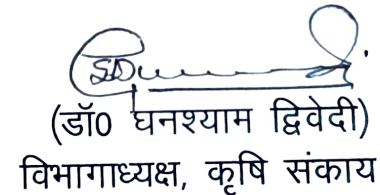 (डॉ0 घनश्याम द्विवेदी)
विभागाध्यक्ष, कृषि संकाय